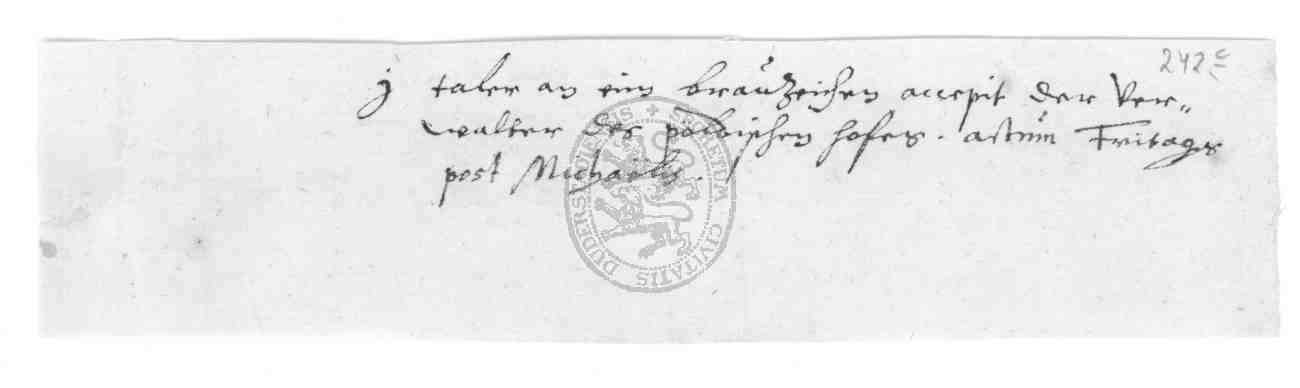 242c
j taler an eim brauzeichen accepit der Ver=
walter des polbischen hofes. actum Fritags
post Michaëlis.
SECRETUM CIVITATIS DUDERSTADIENSIS